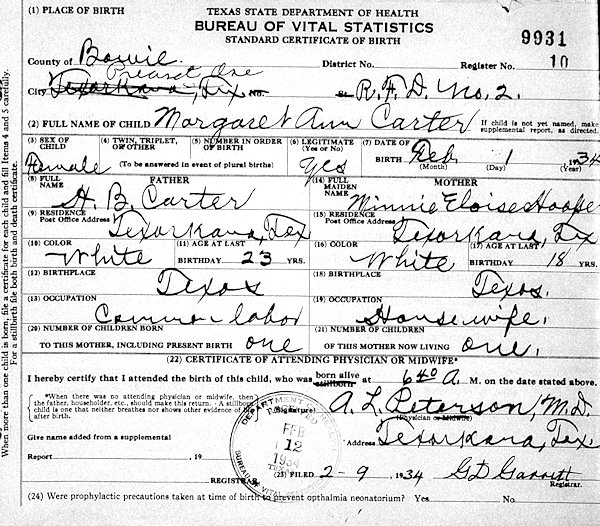 (1) PLACE OF BIRTH
TEXAS STATE DEPARTMENT OF HEALTH
BUREAU OF VITAL STATISTICS
STANDARD CERTIFICATE OF BIRTH
9931
County of Bowie District No. Register No. 10
Precinct One
City Texarkana, Tex No. St. R.F.D. No. 2.
(2) FULL NAME OF CHILD Margaret Ann Carter
If child is not yet named, make supplemental report, as directed.
(3) SEX OF CHILD Female
(4) TWIN, TRIPLET, OR OTHER
(5) NUMBER IN ORDER OF BIRTH
(To be answered in event of plural births)
(6) LEGITIMATE (Yes or No) Yes
(7) DATE OF BIRTH Feb 1 1934
(Month) (Day) (Year)
FATHER
(8) FULL NAME H. B. Carter
MOTHER
(14) FULL MAIDEN NAME Minnie Eloise Hooper
(9) RESIDENCE Post Office Address Texarkana, Tex
(15) RESIDENCE Post Office Address Texarkana, Tex
(10) COLOR White (11) AGE AT LAST BIRTHDAY 23 YRS.
(16) COLOR White (17) AGE AT LAST BIRTHDAY 18 YRS.
(12) BIRTHPLACE Texas
(18) BIRTHPLACE Texas.
(13) OCCUPATION Common labor
(19) OCCUPATION Housewife.
(20) NUMBER OF CHILDREN BORN TO THIS MOTHER, INCLUDING PRESENT BIRTH one
(21) NUMBER OF CHILDREN OF THIS MOTHER NOW LIVING one.
(22) CERTIFICATE OF ATTENDING PHYSICIAN OR MIDWIFE*
I hereby certify that I attended the birth of this child, who was born alive stillborn at 6 40 A. M. on the date stated above.
*When there was no attending physician or midwife, then the father, householder, etc., should make this return. A stillborn child is one that neither breathes nor shows other evidence of life after birth.
(Signature) A. L. Peterson, M.D.
(Physician or Midwife)
Give name added from a supplemental
Address Texarkana, Tex.
Report , 19
REGISTRAR.
DEPARTMENT OF
FEB
12
1934
TEXAS
BUREAU OF VITAL
(23) FILED 2-9 1934 GD Garrett
Registrar.
(24) Were prophylactic precautions taken at time of birth to prevent opthalmia neonatorium? Yes No
When more than one child is born, file a certificate for each child and fill Items 4 and 5 carefully.
For a stillbirth file both birth and death certificate.